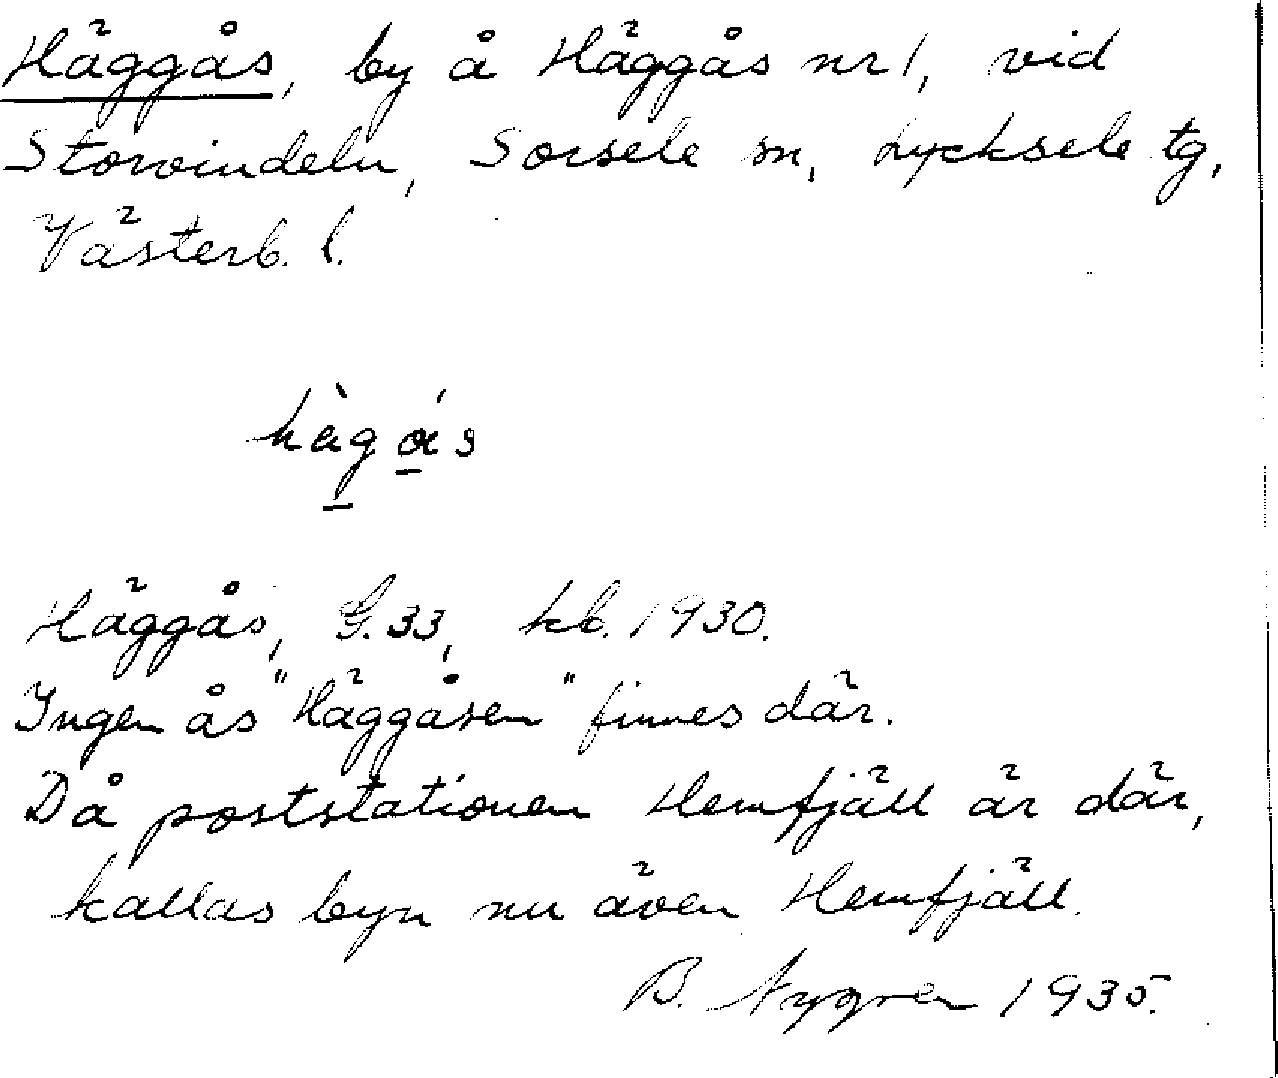 Häggås, by å Häggås nr 1, vid
Storvindeln, Sorsele sn, Lycksele tg,
Västerb. l.
hàgás
Häggås, G. 33, kb. 1930.
Ingen ås "Häggåsen" finnes där.
Då poststationen Hemfjäll är där,
kallas byn nu även Hemfjäll.
B. Nygren 1935.